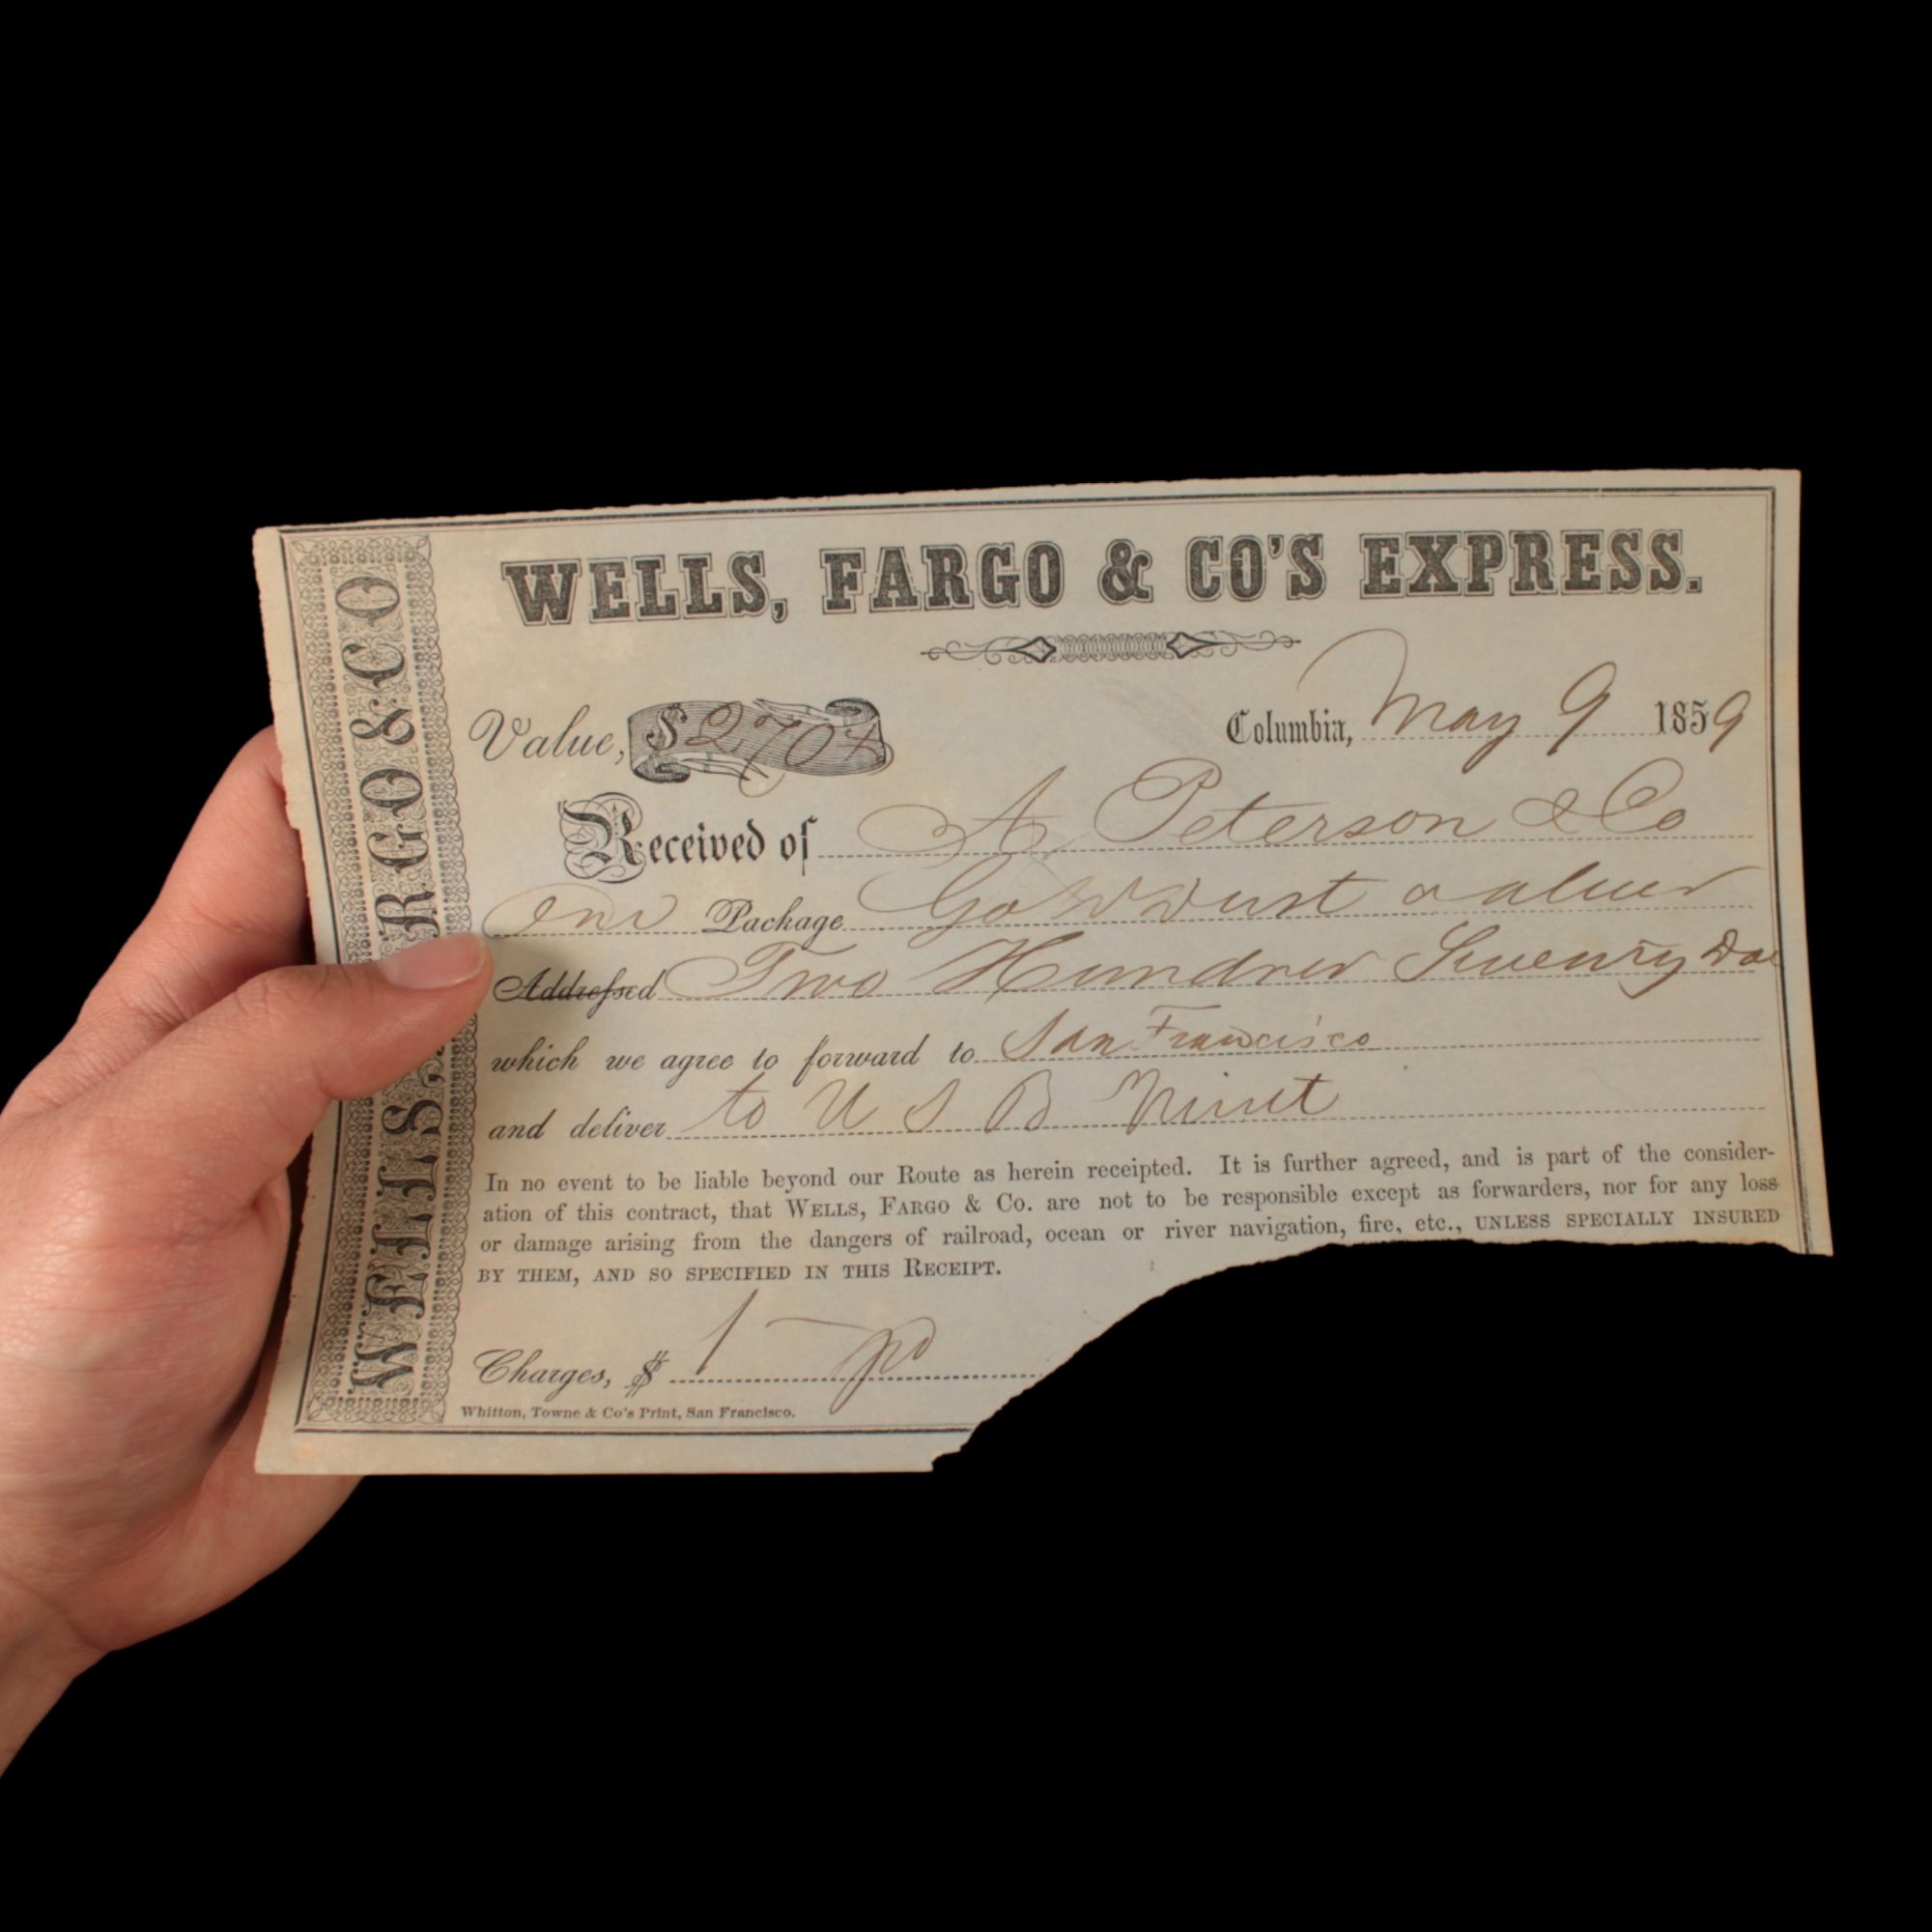 WELLS, FARGO & CO
WELLS, FARGO & CO'S EXPRESS.
Value, $270
Columbia, May 9 1859
Received of A Peterson & Co
One Package Gold Dust valued
Addressed Two Hundred Seventy Dol
which we agree to forward to San Francisco
and deliver to U S B Mint
In no event to be liable beyond our Route as herein receipted. It is further agreed, and is part of the consider-
ation of this contract, that WELLS, FARGO & Co. are not to be responsible except as forwarders, nor for any loss
or damage arising from the dangers of railroad, ocean or river navigation, fire, etc., UNLESS SPECIALLY INSURED
BY THEM, AND SO SPECIFIED IN THIS RECEIPT.
Charges, $ 1 - pd
Whitton, Towne & Co's Print, San Francisco.